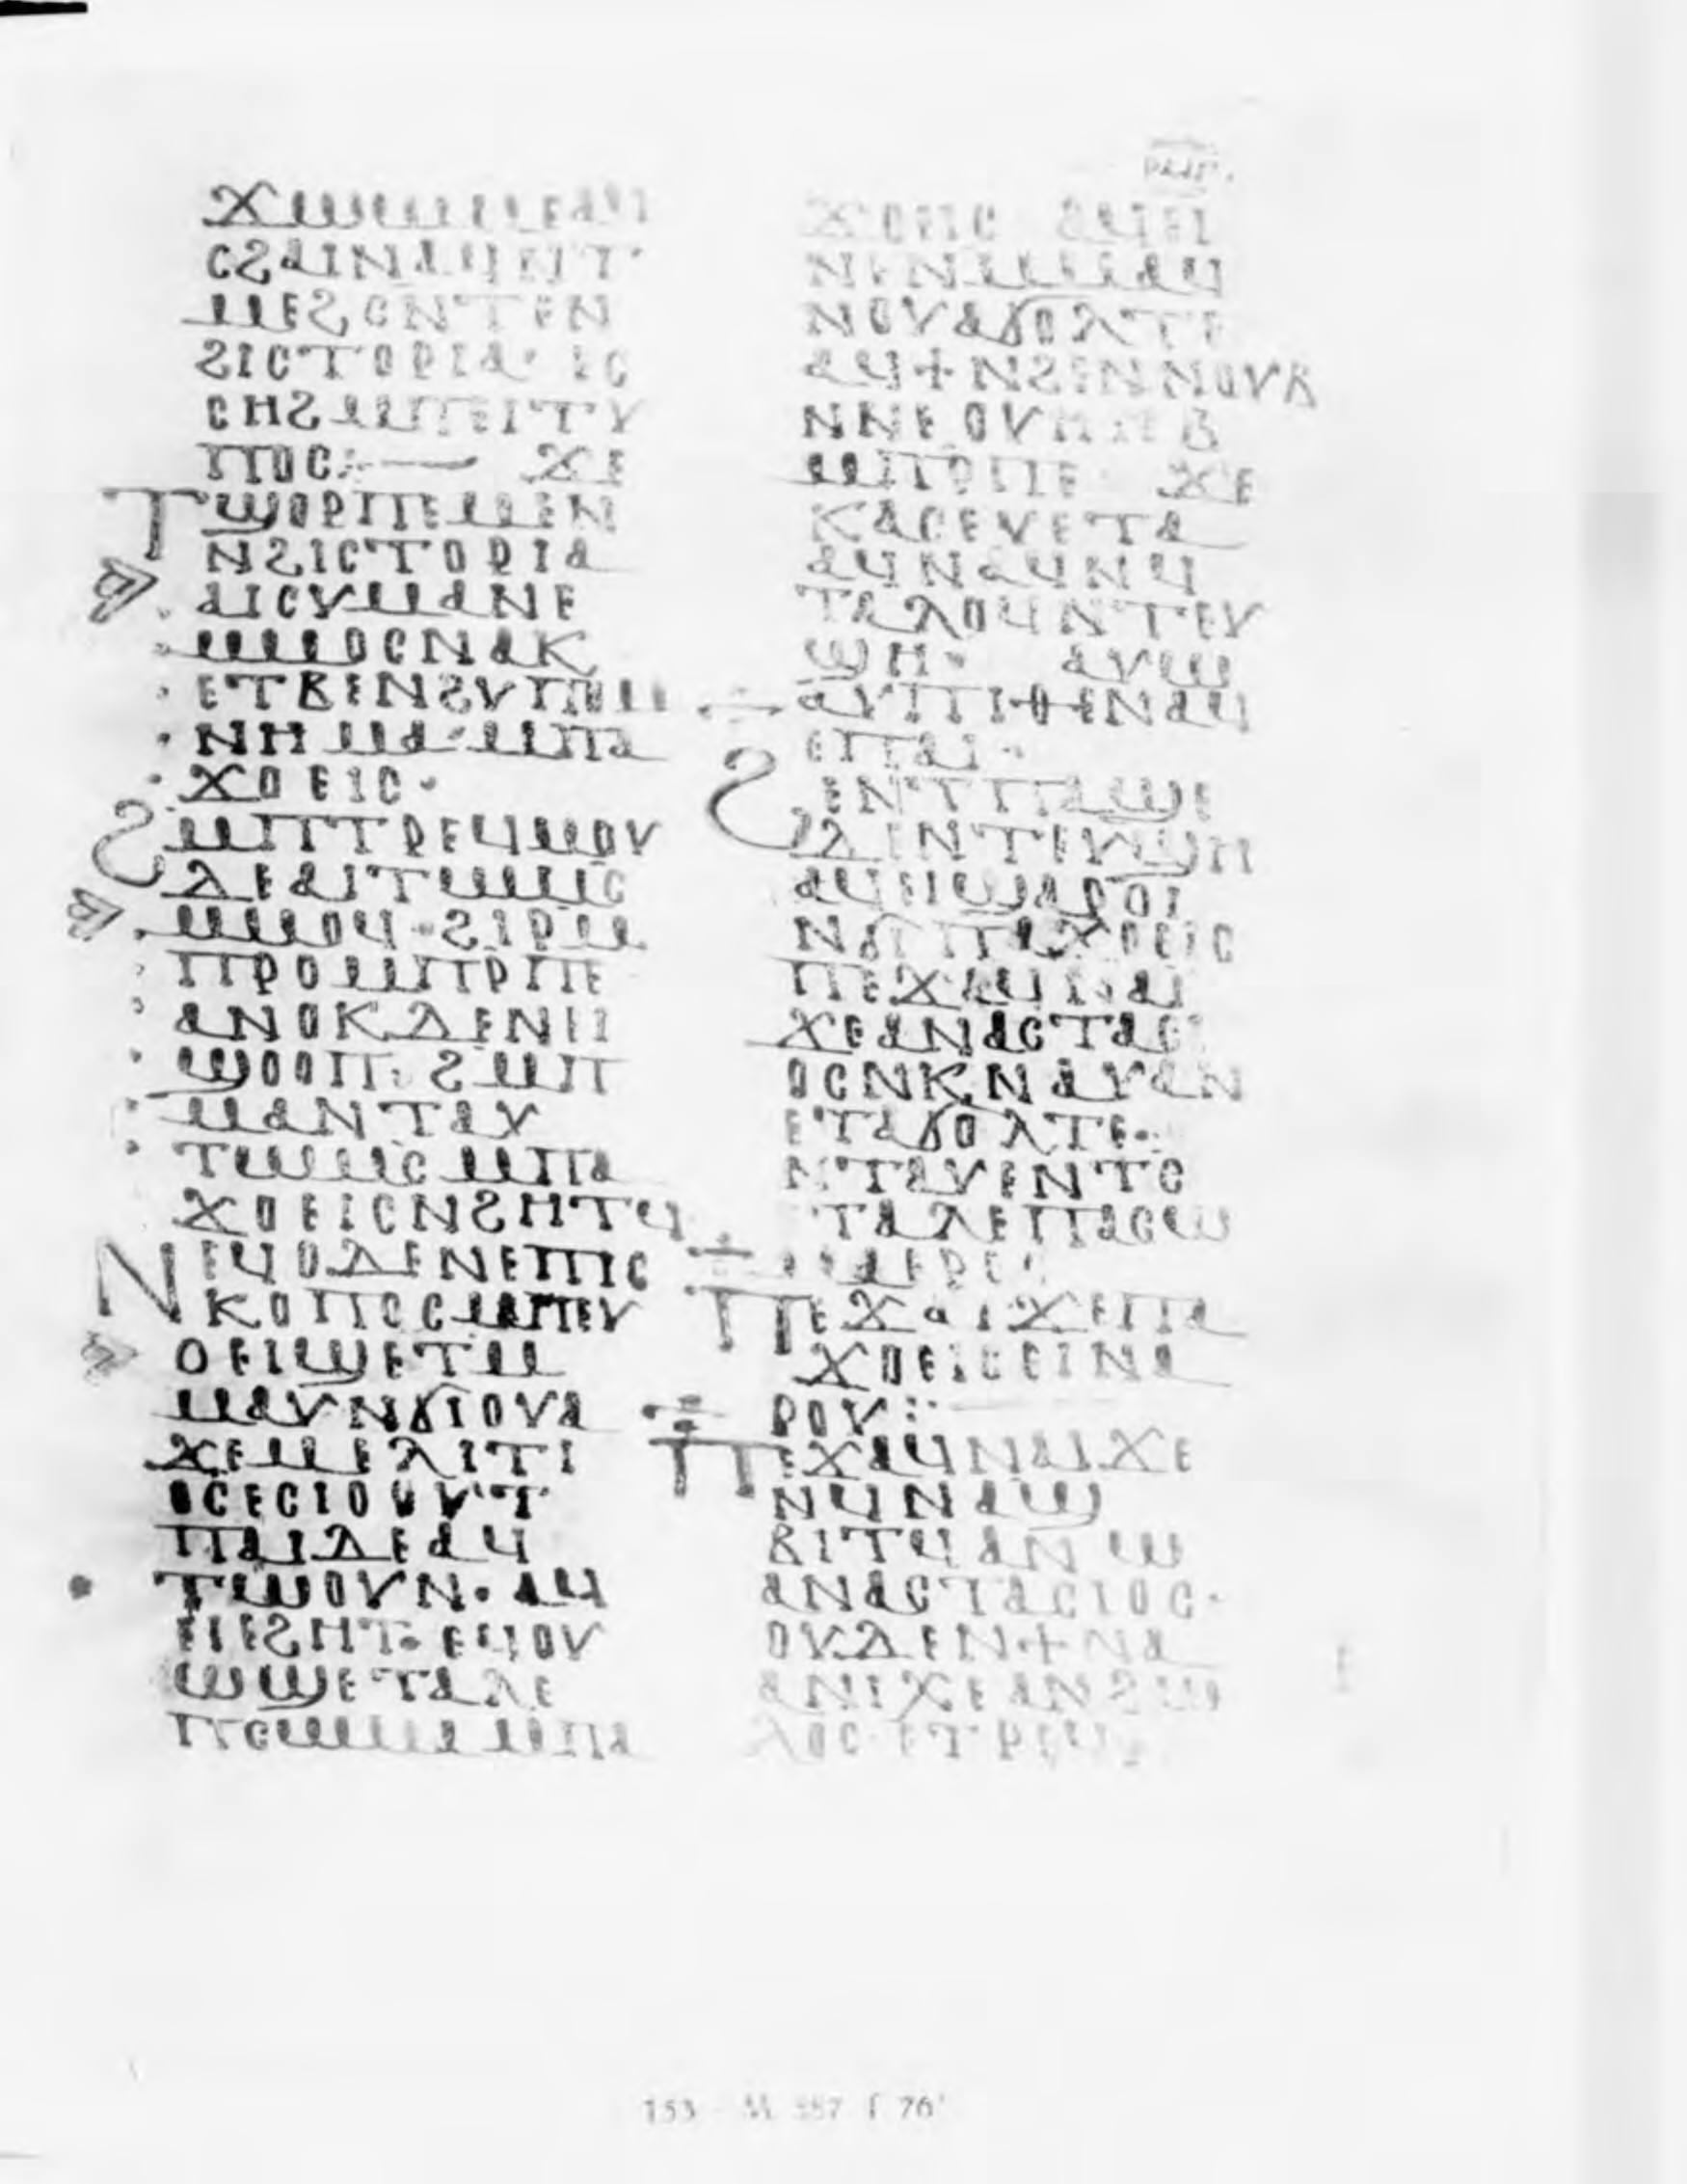 ⲣⲁⲅ.
ϫⲱⲙⲙⲉⲉⲁⲩ
ⲥϩⲁⲓⲛⲁϥⲛⲧ·
ⲙⲉϩⲥⲛⲧⲉⲛ
ϩⲓⲥⲧⲟⲣⲓⲁ· ⲉⲥ
ⲥⲏϩⲙⲡⲉⲓⲧⲩ
ⲡⲟⲥ:— ϫⲉ
ⲧϣⲟⲣⲡⲉⲙⲉⲛ
ⲛϩⲓⲥⲧⲟⲣⲓⲁ
ⲁⲓⲥⲩⲙⲁⲛⲉ
ⲙⲙⲟⲥⲛⲁⲕ
ⲉⲧⲃⲉⲛϩⲩⲡⲟⲙ
ⲛⲏⲙⲁ·ⲙⲡⲁ
ϫⲟⲉⲓⲥ·
ϩⲙⲡⲧⲣⲉϥⲙⲟⲩ
ⲇⲉⲁⲓⲧⲱⲙⲥ
ⲙⲙⲟϥ·ϩⲓⲣⲙ
ⲡⲣⲟⲙⲡⲣⲡⲉ
ⲁⲛⲟⲕⲇⲉⲛⲉⲓ
ϣⲟⲟⲡ·ϩⲙⲡ
ⲙⲁⲛⲧⲁⲩ
ⲧⲱⲙⲥⲙⲡⲁ
ϫⲟⲉⲓⲥⲛϩⲏⲧϥ
ⲛⲉϥⲟⲇⲉⲛⲉⲡⲓⲥ
ⲕⲟⲡⲟⲥⲙⲡⲉⲩ
ⲟⲉⲓϣⲉⲧⲙ
ⲙⲁⲩⲛϭⲓⲟⲩⲁ
ϫⲉⲙⲉⲗⲓⲧⲓ
ⲟⲥⲉⲥⲓⲟⲩⲣ·ⲧ
ⲡⲁⲓⲇⲉⲁϥ
ⲧⲱⲟⲩⲛ·ⲁϥ
ⲉⲓⲉϩⲏⲧ·ⲉϥⲟⲩ
ⲱϣⲉⲧⲁⲗⲉ
ⲡⲥⲱⲙⲁⲙⲡⲁ
ϫⲟⲉⲓⲥ ϩⲁϥⲉⲓ
ⲛⲉⲛⲙⲙⲁϥ
ⲛⲟⲩϭⲟⲗⲧⲉ
ⲁϥϯⲛϩⲉⲛⲛⲟⲩⲃ
ⲛⲛⲉⲟⲩⲏⲏⲃ
ⲙⲡⲣⲡⲉ ϫⲉ
ⲕⲁⲥⲉⲩⲉⲧⲁ
ⲁϥⲛⲁϥⲛϥ
ⲧⲁⲗⲟϥⲛⲧⲉⲩ
ϣⲏ· ⲁⲩⲱ
ⲁⲩⲡⲓⲑⲉⲛⲁϥ
ⲉⲡⲁⲓ·
ϩⲉⲛⲧⲡⲁϣⲉ
ⲇⲉⲛⲧⲉⲩϣⲏ
ⲁϥⲉⲓϣⲁⲣⲟⲓ
ⲛϭⲓⲡⲁϫⲟⲉⲓⲥ
ⲡⲉϫⲁϥⲛⲁⲓ
ϫⲉⲁⲛⲁⲥⲧⲁⲥⲓ
ⲟⲥⲛⲕⲛⲁⲩⲁⲛ
ⲉⲧⲁϭⲟⲗⲧⲉ·
ⲛⲧⲁⲩⲉⲛⲧⲥ
ⲉⲧⲁⲗⲉⲡⲁⲥⲱ
ⲙⲁⲉⲣⲟⲥ
ⲡⲉϫⲁⲓϫⲉⲡⲁ
ϫⲟⲉⲓⲥⲉⲓⲛⲁ
ⲣⲟⲩ:—
ⲡⲉϫⲁϥⲛⲁⲓϫⲉ
ⲛϥⲛⲁϣ
ⲃⲓⲧϥⲁⲛ ⲱ
ⲁⲛⲁⲥⲧⲁⲥⲓⲟⲥ·
ⲟⲩⲇⲉⲛϯⲛⲁ
ⲁⲛⲓϫⲉⲁⲛϩⲱ
ⲗⲟⲥ·ⲉⲧⲣⲉϥ
153 M 587 f 76ʳ